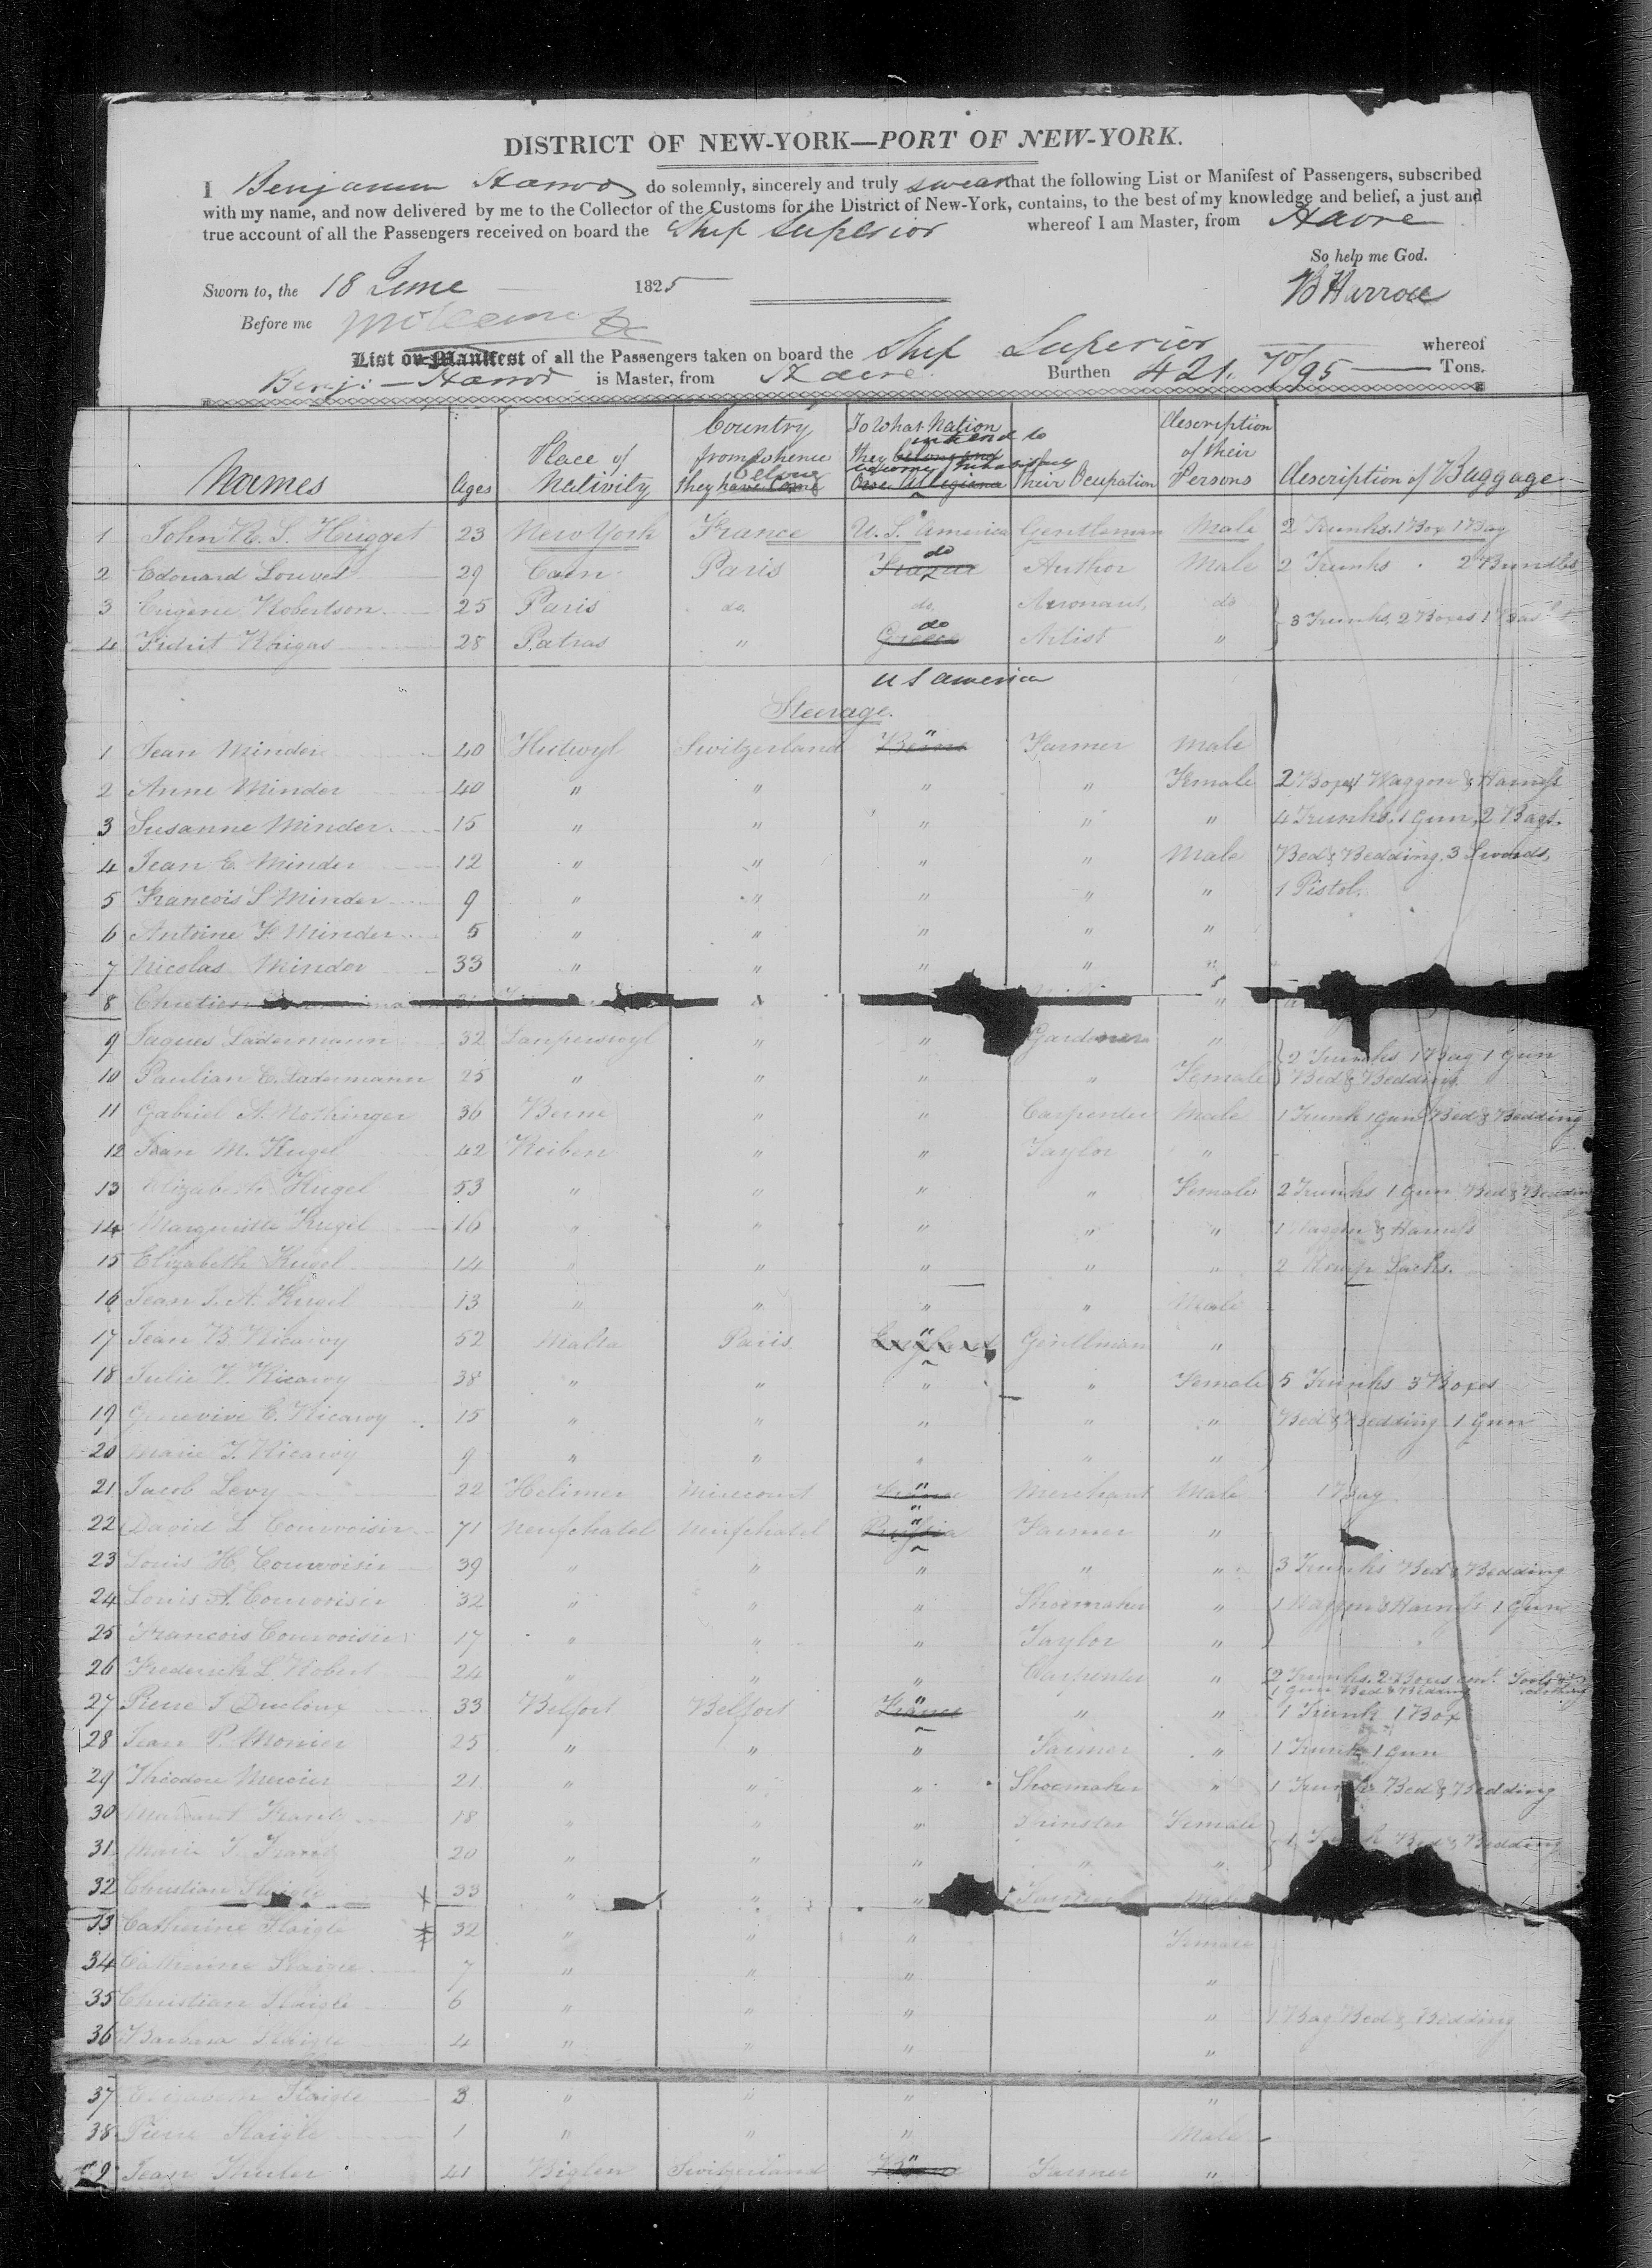 DISTRICT OF NEW-YORK—PORT OF NEW-YORK.
I Benjamin Harrod do solemnly, sincerely and truly swear that the following List or Manifest of Passengers, subscribed
with my name, and now delivered by me to the Collector of the Customs for the District of New-York, contains, to the best of my knowledge and belief, a just and
true account of all the Passengers received on board the Ship Superior whereof I am Master, from Havre
So help me God.
Sworn to, the 18 June 1825
B Harrod
Before me
List or Manifest of all the Passengers taken on board the Ship Superior whereof
Benj: Harrod is Master, from Havre Burthen 421. 70/95 Tons.
Names Ages Place of Nativity Country from whence they have come belong To What Nation they belong and intend to become Inhabitants Owe Allegiance Their Ocupation Description of their Persons Description of Baggage
1 John R. S. Hugget 23 New York France U. S. America Gentleman Male 2 Trunks 1 Box 1 Bag
2 Edouard Louvet 29 Caen Paris France do Author Male 2 Trunks 2 Bundles
3 Eugene Robertson 25 Paris do. do. Aeronaut do
3 Trunks, 2 Boxes 1
4 Rhigas 28 Patras " Greece do Artist "
U S America
Steerage.
1 Jean Minder 40 Hutwyl Switzerland Berne " Farmer Male
2 Anne Minder 40 " " " " Female 2 Boxes 1 Waggon & Harness
3 Susanne Minder 15 " " " " " 4 Trunks, 1 Gun, 2 Bags.
4 Jean C. Minder 12 " " " " Male Bed & Bedding, 3 Swords,
5 Francois S Minder 9 " " " " " 1 Pistol.
6 Antoine F. Minder 5 " " " " "
7 Nicolas Minder 33 " " " " "
8 "
9 Jaques Ladermann 32 Lanperswyl " " Gardener "
2 Trunks 1 Bag 1 Gun
10 Paulian C. Ladermann 25 " " " " Female Bed & Bedding
11 Gabriel A. Nothinger 36 Berne " " Carpenter Male 1 Trunk 1 Gun Bed & Bedding
12 Jean M. Kugel 42 Reiben " " Taylor "
13 Elizabeth Kugel 53 " " " " Female 2 Trunks 1 Gun Bed & Bedding
14 Margueritte Kugel 16 " " " " " 1 Waggon & Harness
15 Elizabeth Kugel 14 " " " " " 2 Sacks.
16 Jean J. A. Kugel 13 " " " " Male
17 Jean B Ricarvy 52 Malta Paris England " Gentlman "
18 Julie V. Ricarvy 38 " " " " Female 5 Trunks 3 Boxes
19 Genevive C. Ricarvy 15 " " " " " Bed & Bedding 1 Gun
20 Marie J. Ricarvy 9 " " " " "
21 Jacob Levy 22 Helimer Mirecourt France " Merchant Male 1 Bag
22 David L Courvoisir 71 Neufchatel Neufchatel Prussia " Farmer "
23 Louis H. Courvoisir 39 " " " " " 3 Trunks Bed & Bedding
24 Louis A. Courvoisir 32 " " " Shoemaker " 1 Waggon & Harness 1 Gun
25 Francois Courvoisir 17 " " " Taylor "
26 Frederick L Robert 24 " " " Carpenter " 2 Trunks. 2 Boxes cont. Tools &
1 Gun Bed & Bedding clothing
27 Pierre J Ducloux 33 Belfort Belfort France " " " 1 Trunk 1 Box
28 Jean P. Monier 25 " " " Farmer " 1 Trunk 1 Gun
29 Théodore Mercier 21 " " " Shoemaker " 1 Trunk Bed & Bedding
30 18 " " " Female
1 Trunk Bed & Bedding
31 Marie 20 " " " " "
32 Christian Slaigle 33 " " " Farmer Male
33 Catherine Slaigle 32 " " " Female
34 Catherine Slaigle 7 " " " "
35 Christian Slaigle 6 " " " " 1 Bag Bed & Bedding
36 Barbara Slaigle 4 " " " "
37 Elizabeth Slaigle 3 " " " "
38 Pierre Slaigle 1 " " " Male
39 Jean 41 Biglen Switzerland " Farmer "